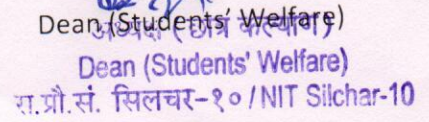 Dean (Students' Welfare)
अध्यक्ष (छात्र कल्याण)
Dean (Students' Welfare)
रा.प्रौ.सं. सिलचर-१०/NIT Silchar-10